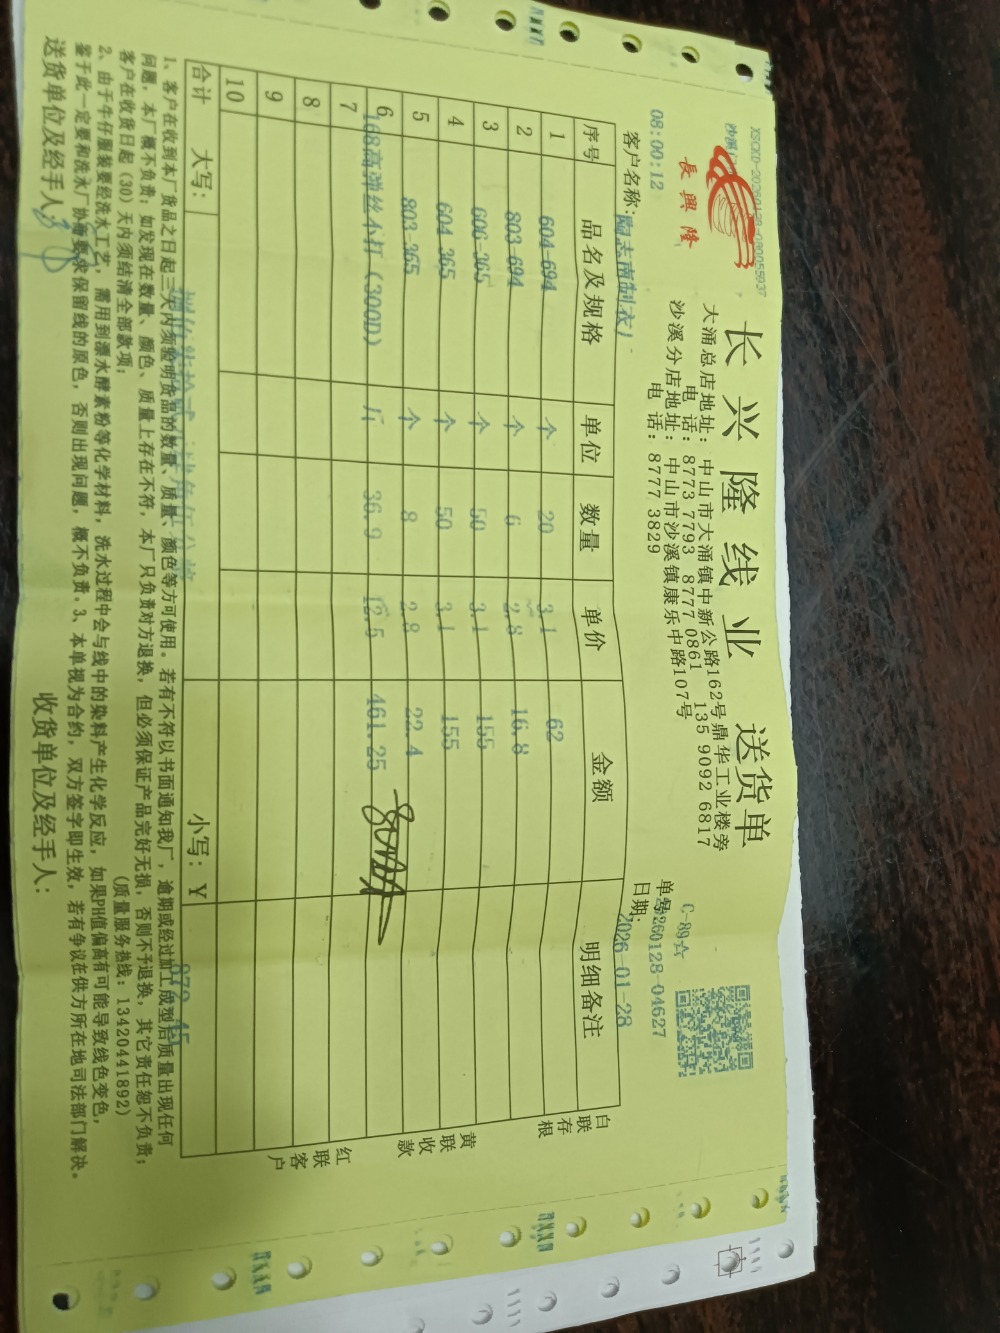 XSCKD-20260128-080055937
長興隆
长兴隆线业 送货单
大涌总店地址：中山市大涌镇中新公路162号鼎华工业楼旁
电 话：8773 7793 8777 0861 135 9092 6817
沙溪分店地址：中山市沙溪镇康乐中路107号
电 话：8777 3829
C-89☆
单号 260128-04627
08:00:12
客户名称： 志南制衣
日期：2026-01-28
序号 品名及规格 单位 数量 单价 金额 明细备注
1 604-694 个 20 3.1 62
2 803-694 个 6 2.8 16.8
3 606-365 个 50 3.1 155
4 604 365 个 50 3.1 155
5 803-365 个 8 2.8 22.4
6 168高弹丝小灯（300D） 斤 36.9 12.5 461.25
7
8
9
10
合计 大写： 小写：￥ 872.45
白联存根
黄联收款
红联客户
1、客户在收到本厂货品之日起三天内须验明货品的数量、质量、颜色等方可使用。若有不符以书面通知我厂，逾期或经过加工成型后质量出现任何
问题，本厂概不负责；如发现在数量、颜色、质量上存在不符，本厂只负责对方退换，但必须保证产品完好无损，否则不予退换，其它责任恕不负责；
客户在收货日起（30）天内须结清全部款项； （质量服务热线：13420441892）
2、由于牛仔服装要经洗水工艺，需用到漂水酵素粉等化学材料，洗水过程中会与线中的染料产生化学反应，如果PH值偏高有可能导致线色变色，
鉴于此一定要和洗水厂协商要求保留线的原色，否则出现问题，概不负责。3、本单视为合约，双方签字即生效，若有争议在供方所在地司法部门解决。
送货单位及经手人： 收货单位及经手人：